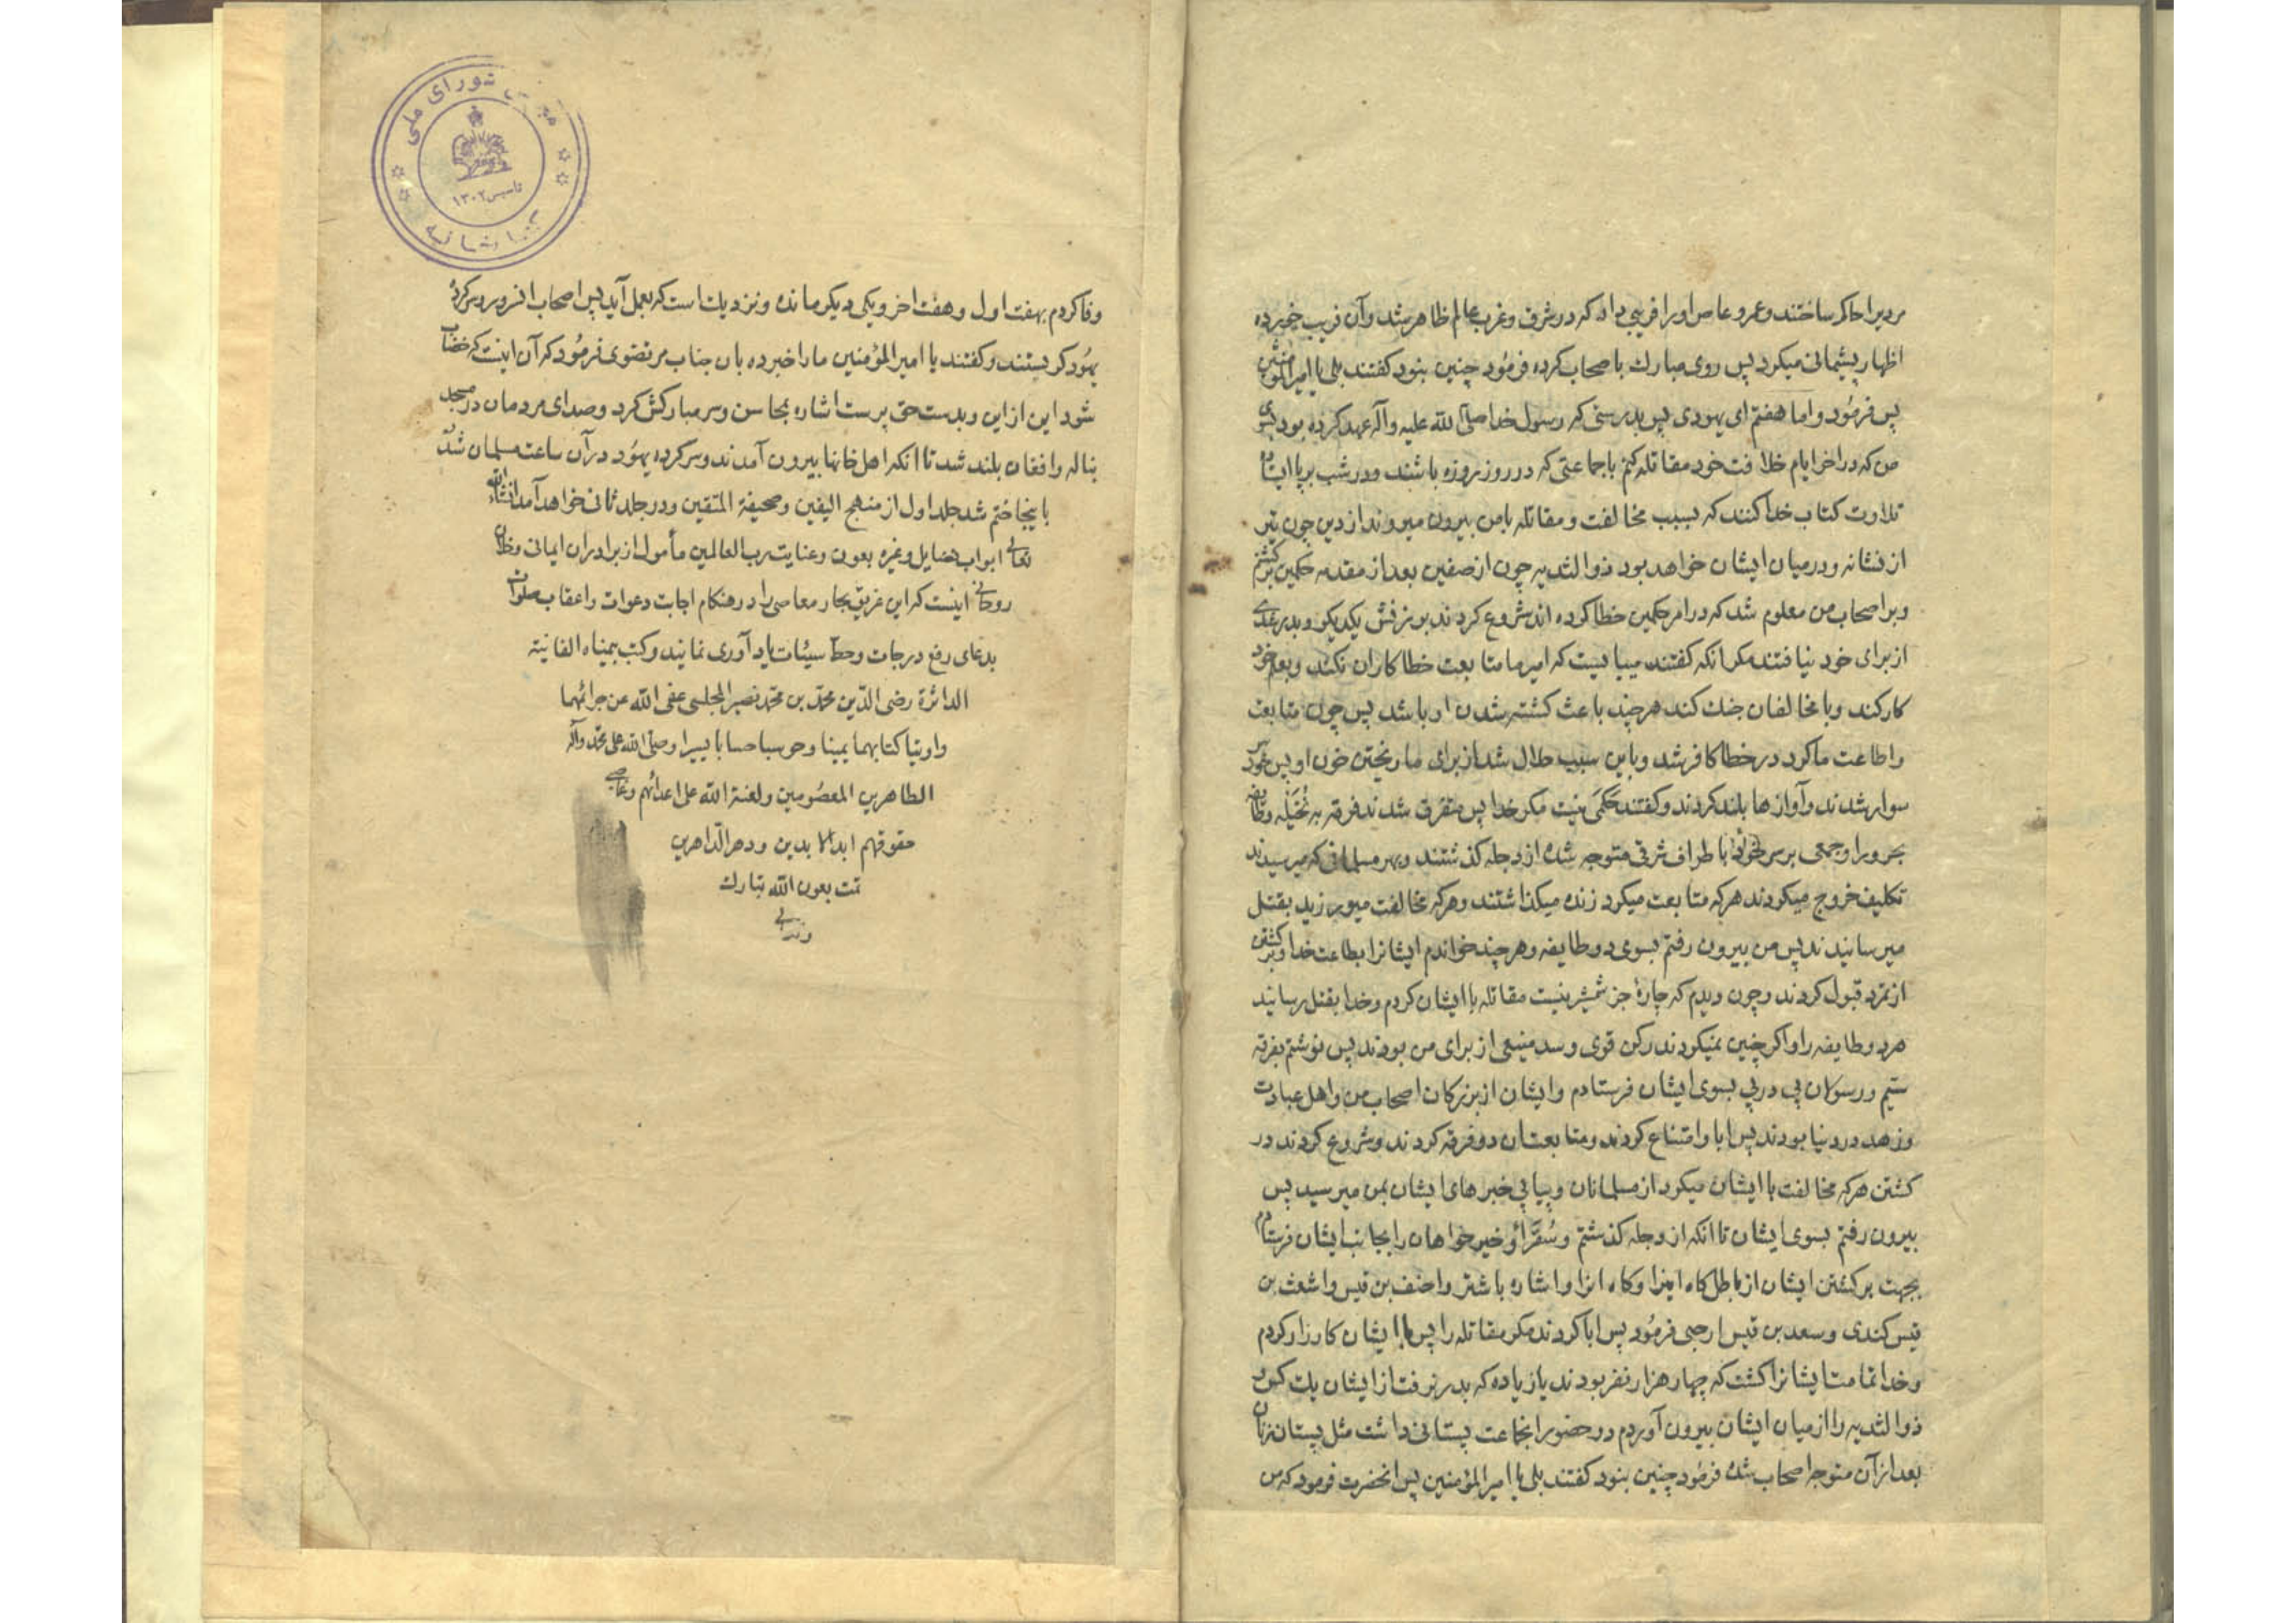 مردیرا حاکم ساختند و عمرو عاص او را فریبی داد که در شرق و غرب عالم ظاهر شد و آن فریب خورده
اظهار پشیمانی میکرد پس روی مبارك باصحاب کرده فرمود چنین بنود کفتند بلی یا امیر المؤمنین
پس فرمود و اما هفتم ای یهودی پس بدرستی که رسول خدا صلی الله علیه وآله عهد کرده بود بسوی
من که در اخر ایام خلافت خود مقاتله کنم با جماعتی که در روز بروزه باشند و در شب برپا ایستاده
تلاوت کتاب خدا کنند که بسبب مخالفت و مقاتله با من بیرون میروند از دین چون تیر
از نشانه و در میان ایشان خواهد بود ذو الثدیه چون از صفین بعد از مقدمه حکمین برکشتم
و بر اصحاب من معلوم شد که در امر حکمین خطا کرده اند شروع کردند بسرزنش یکدیکر و بدر عذری
از برای خود نیافتند مکر انکه کفتند میبایست که امیر ما متابعت خطاکاران نکند و بعلم خود
کار کند و با مخالفان جنك کند هر چند باعث کشته شدن او باشد پس چون متابعت
و اطاعت ما کرد در خطا کافر شد و باین سبب حلال شد از برای ما ریختن خون او پس
سوار شدند و آوازها بلند کردند و کفتند حکمی نیست مکر خدا پس متفرق شدند فرقه به نخیله و طایفه
بحرورا و جمعی باطراف شرقی متوجه شده از دجله کذشتند و بهر مسلمانی که میرسیدند
تکلیف خروج میکردند هر که متابعت میکرد زنده میکذاشتند و هر که مخالفت میورزید بقتل
میرسانیدند پس من بیرون رفتم بسوی دو طایفه و هر چند خواندم ایشانرا بطاعت خدا و برکشتن
از تمرد قبول کردند و چون دیدم که چارۀ جز شمشیر نیست مقاتله با ایشان کردم و خدا بقتل رسانید
هر دو طایفه را و اکر چنین نمیکردند رکن قوی و سد منیعی از برای من بودند پس نوشتم بفرقه
سیم و رسولان پی در پی بسوی ایشان فرستادم و ایشان از بزرکان اصحاب من و اهل عبادت
و زهد در دنیا بودند پس ابا و امتناع کردند و متابعت آن دو فرقه کردند و شروع کردند در
کشتن هر که مخالفت با ایشان میکرد از مسلمانان و پیاپی خبرهای ایشان بمن میرسید پس
بیرون رفتم بسوی ایشان تا انکه از دجله کذشتم و سفراء و خیرخواهان را بجانب ایشان فرستادم
بجهت برکشتن ایشان از باطل کاه اینرا و کاه انرا و اشاره باشتر و احنف بن قیس و اشعث بن
قیس کندی و سعد بن قیس ارحبی فرمود پس ابا کردند مکر مقاتله را پس با ایشان کارزار کردم
و خدا تمامت ایشانرا کشت که چهار هزار نفر بودند یا زیاده که بدر نرفت از ایشان یك کس و
ذو الثدیه را از میان ایشان بیرون آوردم در حضور انجماعت پستانی داشت مثل پستان زنان
بعد از آن متوجه اصحاب شده فرمود چنین بنود کفتند بلی یا امیر المؤمنین پس انحضرت فرمود که من
شورای ملی
تاسیس ۱۳۰۲
وفا کردم بهفت اول و هفت اخر و یکی دیکر مانده و نزدیك است که بعمل آید پس اصحاب انسرور و سرکرده
یهود کریستند و کفتند یا امیر المؤمنین ما را خبر ده بان جناب مرتضوی فرمود که آن اینست که خضاب
شود این از این و بدست حق پرست اشاره بمحاسن و سر مبارکش کرد و صدای مردمان در مسجد
بناله و افغان بلند شد تا انکه اهل خانها بیرون آمدند و سرکرده یهود در آن ساعت مسلمان شد
باینجا ختم شد جلد اول از منهج الیقین و صحیفة المتقین و در جلد ثانی خواهد آمد انشاء الله
تعالی ابواب فضایل و غیره بعون و عنایت رب العالمین مأمول از برادران ایمانی و خلان
روحانی اینست که این غریق بحار معاصی را در هنکام اجابت دعوات و اعقاب صلوات
بدعای رفع درجات و حط سیئات یاد آوری نمایند و کتب بیمناه الفانیة
الداثرة رضی الدین محمد بن محمد نصیر المجلسی عفی الله عن جرائمهما
و اوتیا کتابهما یمینا و حوسبا حسابا یسیرا و صلی الله علی محمد وآله
الطاهرین المعصومین و لعنة الله علی اعدائهم و غاصبی
حقوقهم ابد الابدین و دهر الداهرین
تمت بعون الله تبارك
و تعالی